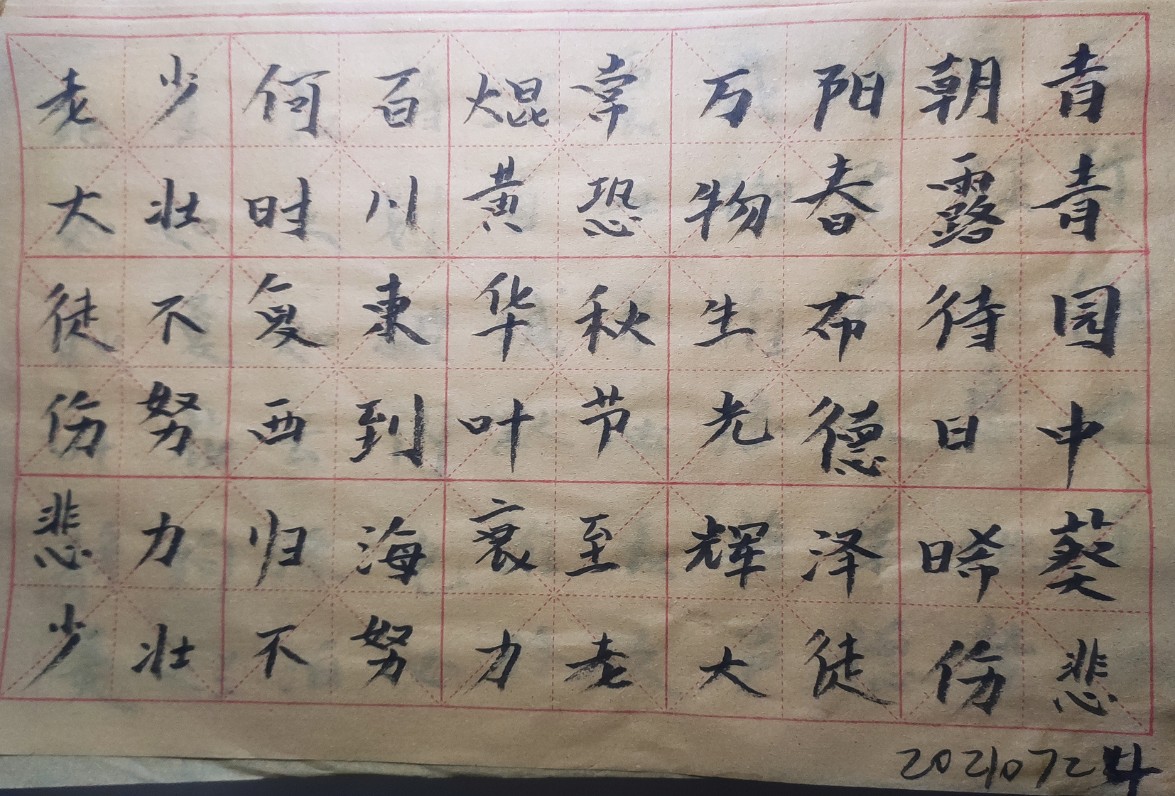 青青园中葵
朝露待日晞
阳春布德泽
万物生光辉
常恐秋节至
焜黄华叶衰
百川東到海
何时复西归
少壮不努力
老大徒伤悲
少壮不努力老大徒伤悲
20210724